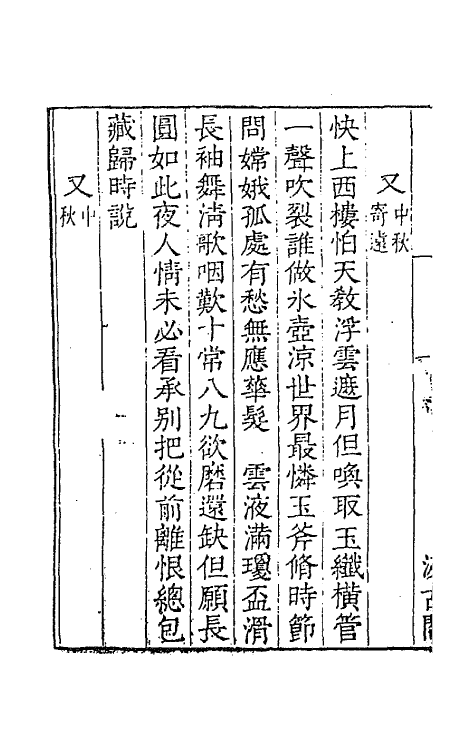 又中秋寄遠
快上西樓怕天教浮雲遮月但喚取玉纖橫管
一聲吹裂誰做氷壺涼世界最憐玉斧脩時節
問嫦娥孤處有愁無應華髮　雲液滿瓊盃滑
長袖舞清歌咽歎十常八九欲磨還缺但願長
圓如此夜人情未必看承别把從前離恨總包
藏歸時説
又中秋